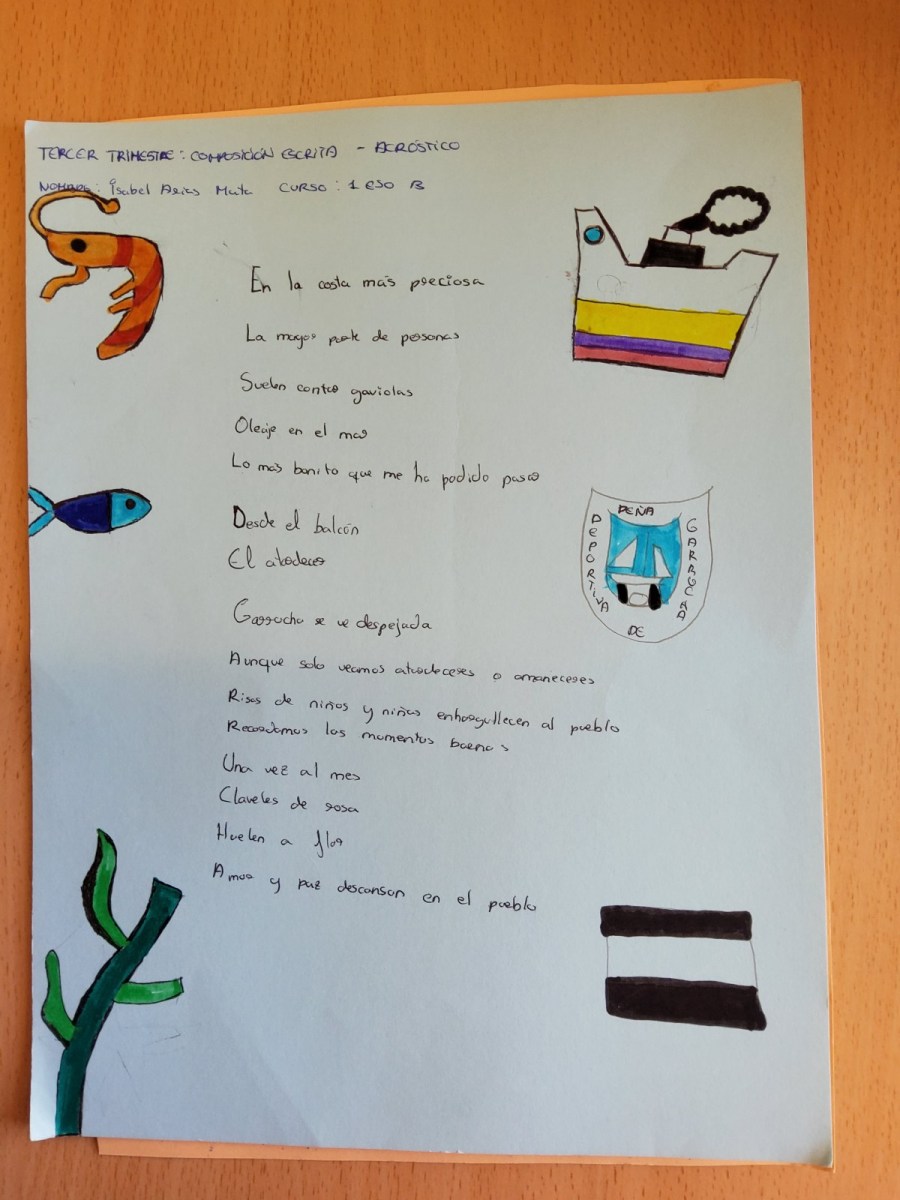 TERCER TRIMESTRE: COMPOSICIÓN ESCRITA - ACRÓSTICO
NOMBRE: Isabel Arias Mula CURSO: 1 ESO B
En la costa más preciosa
La mayor parte de personas
Suelen contar gaviotas
Oleaje en el mar
Lo mas bonito que me ha podido pasar
Desde el balcón
El atardecer
Garrucha se ve despejada
Aunque solo veamos atardeceres o amaneceres
Risas de niños y niñas enhorgullecen al pueblo
Recordamos los momentos buenos
Una vez al mes
Claveles de rosa
Huelen a flor
Amor y paz descansan en el pueblo
PEÑA
DEPORTIVA
DE
GARRUCHA